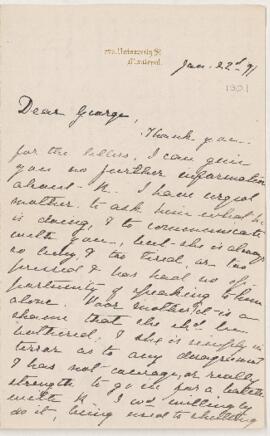 University St
Montreal.
Jan. 22nd 91
1891
Dear George,
Thank you
for the letters. I can give
you no further information
about K. I have urged
mother to ask him what he
is doing, & to communicate
with you, but she is always
so busy, & too tired, or too
& has had no op-
portunity of speaking to him
alone. Poor mother it is a
shame that she shd. be
bothered, & she is simply in
terror as to any disagreement
& has not courage, or really
strength to go in for a battle
with K. I wd. willingly
do it, being used to